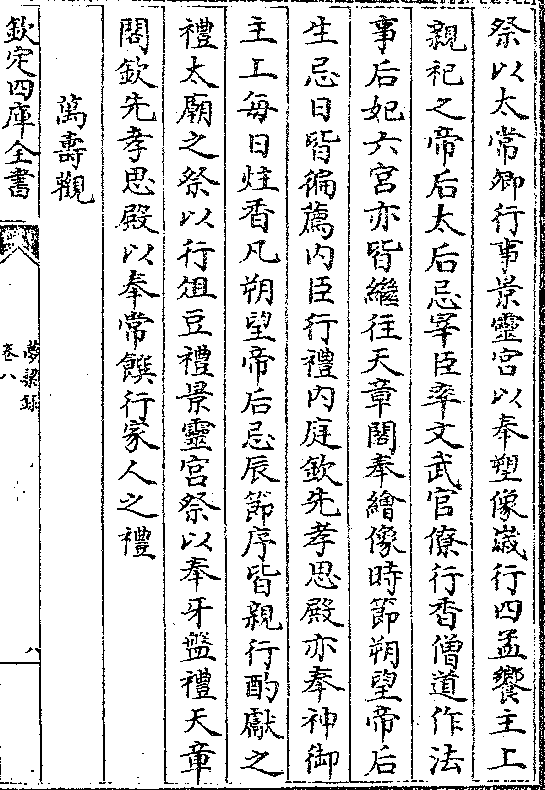 祭以太常卿行事景靈宮以奉塑像嵗行四孟饗主上
親祀之帝后太后忌宰臣率文武官僚行香僧道作法
事后妃六宮亦皆繼往天章閣奉繪像時節朔望帝后
生忌日皆徧薦内臣行禮内庭欽先孝思殿亦奉神御
主上每日炷香凡朔望帝后忌辰節序皆親行酌獻之
禮太廟之祭以行俎豆禮景靈宮祭以奉牙盤禮天章
閣欽先孝思殿以奉常饌行家人之禮
萬壽觀
欽定四庫全書
夢粱録
卷八
八